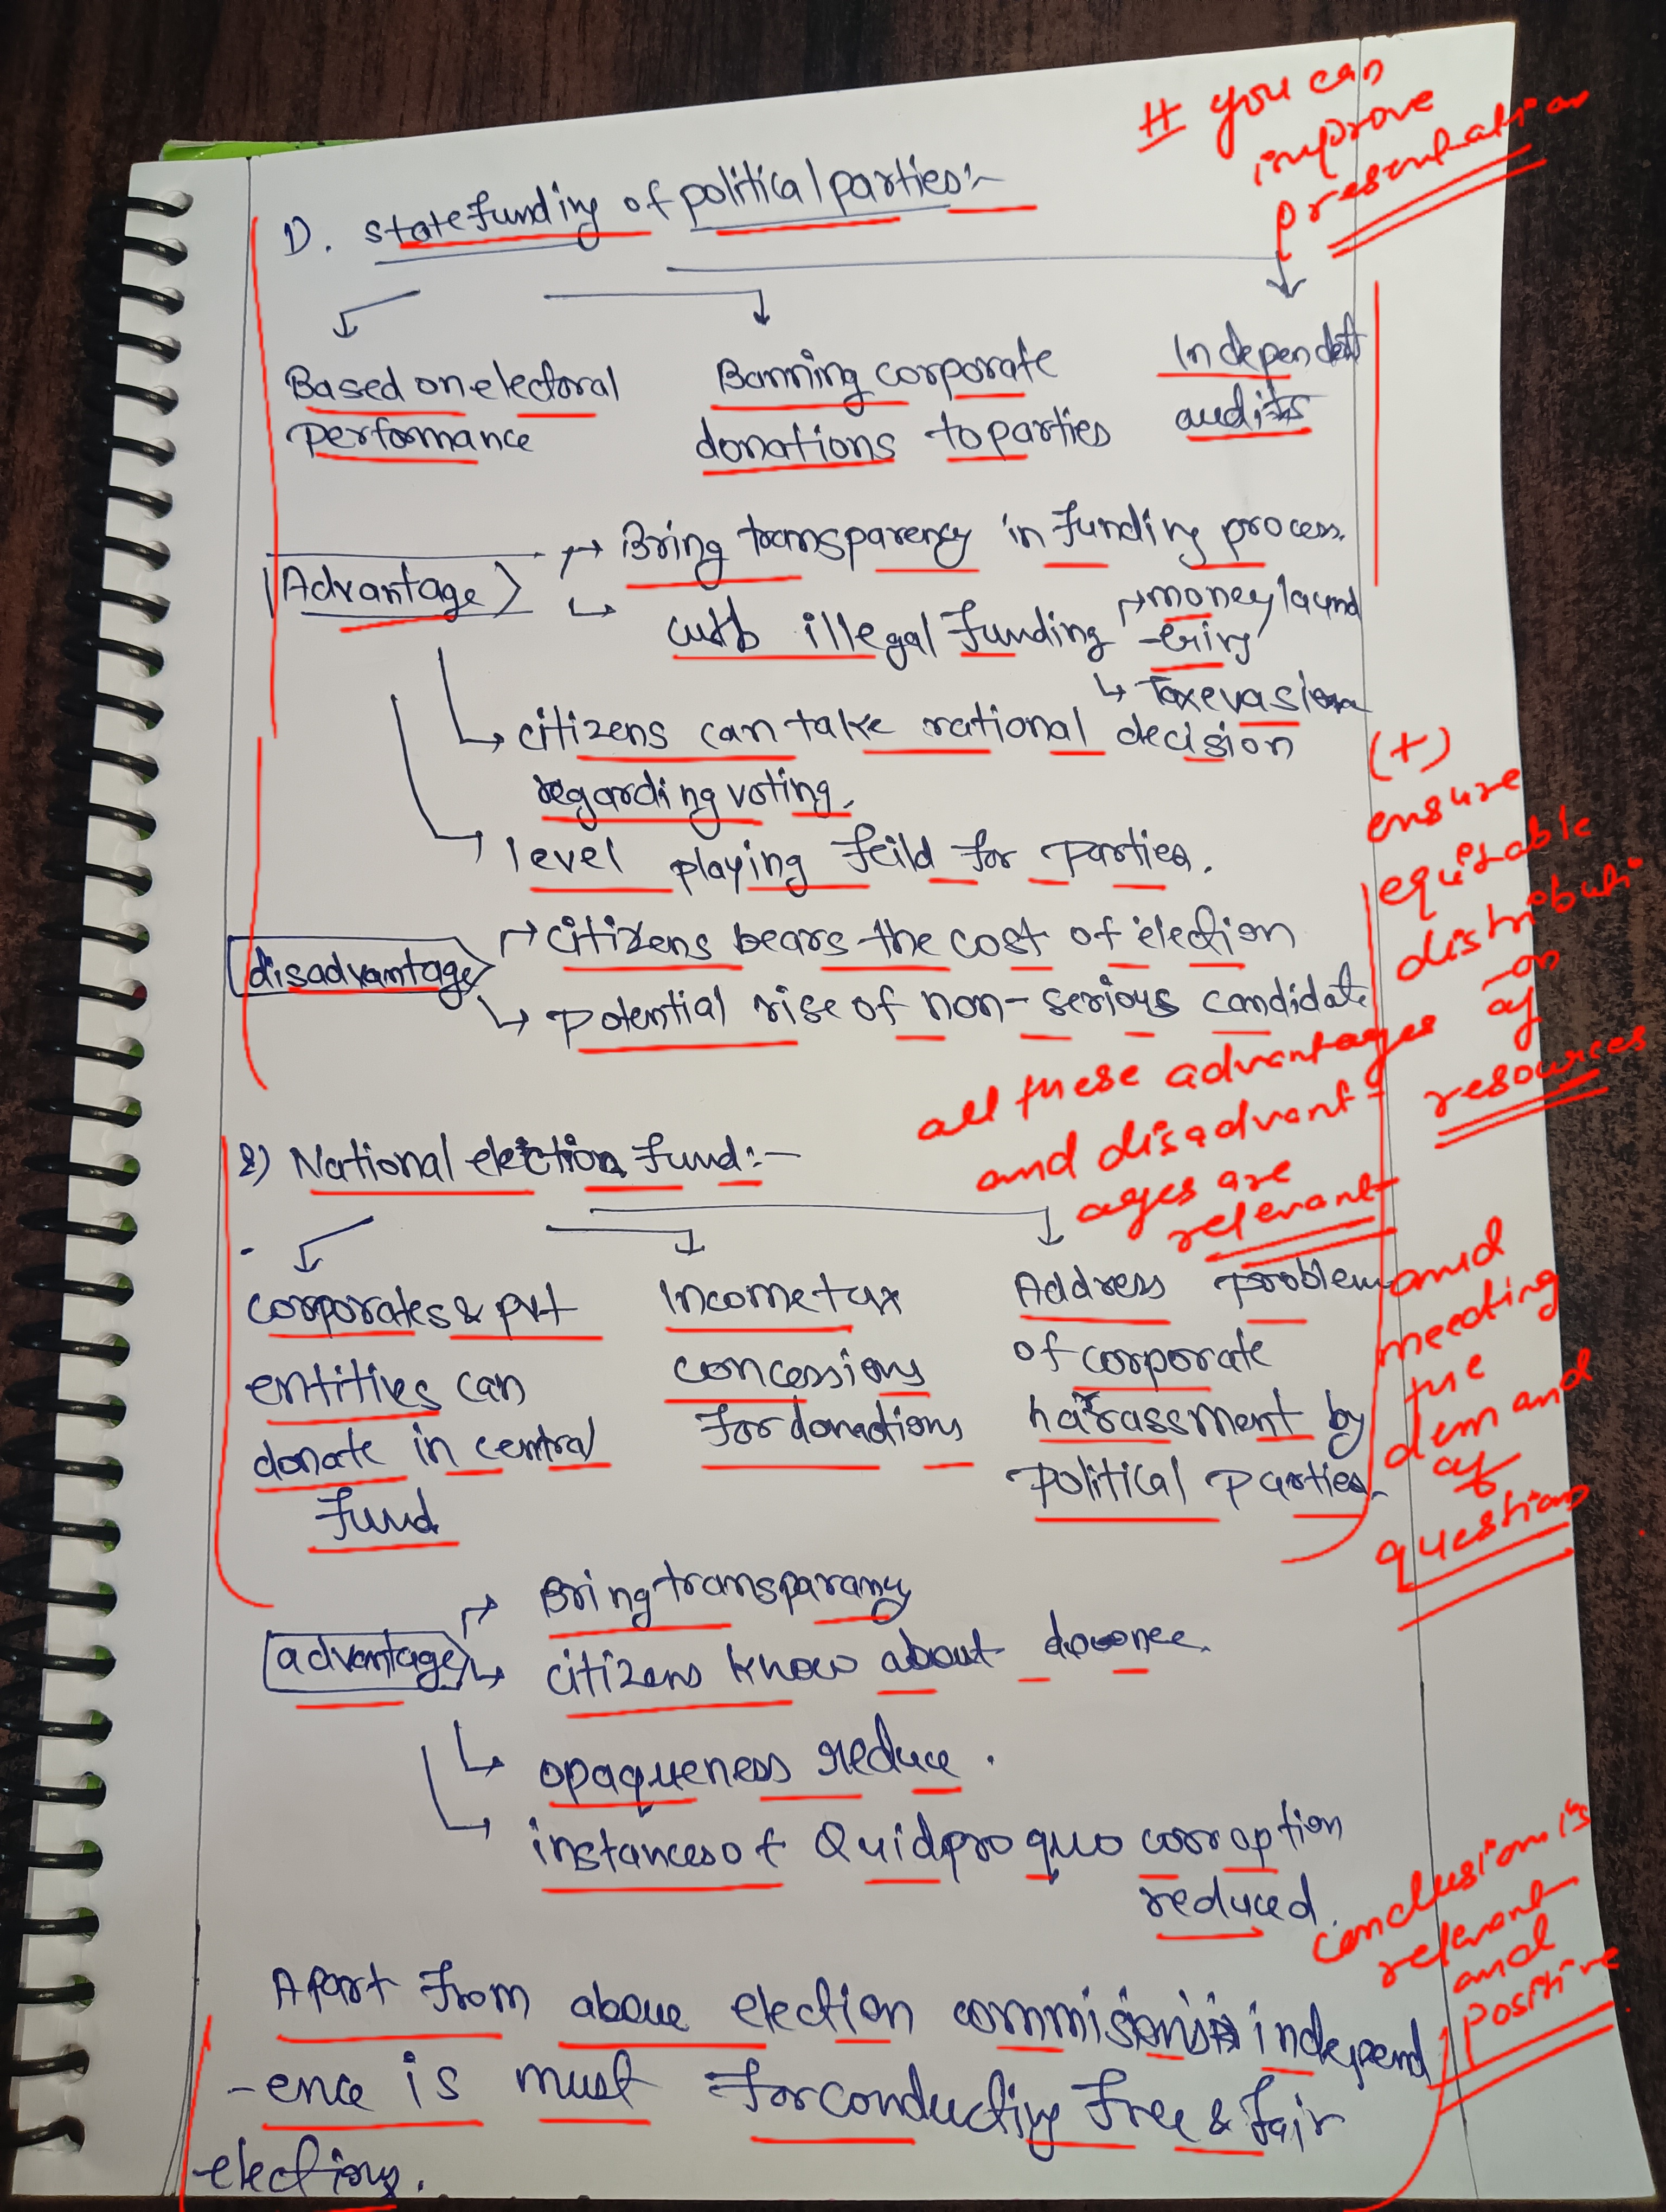 # you can
improve
presentation
1). state funding of political parties:-
Based on electoral
performance
Banning corporate
donations to parties
Independent
audits
Advantage
Bring transparency in funding process.
curb illegal funding
money laund
-ering
Tax evasion
citizens can take rational decision
regarding voting.
level playing feild for parties.
(+)
ensure
equitable
distributi
-on
of
resources
disadvantage
citizens bears the cost of election
potential rise of non-serious candidate
all these advantages
and disadvant-
ages are
relevant
and
meeting
the
demand
of
questions
2) National election fund:-
corporates & pvt
entities can
donate in central
fund
Income tax
concessions
for donations
Address problem
of corporate
harassment by
political parties.
advantage
Bring transparany
citizens know about donee.
opaqueness reduce.
instances of Quid pro quo corroption
reduced.
conclusion is
relevant
and
positive
Apart from above election commisions independ
-ence is must for conducting free & fair
elections.